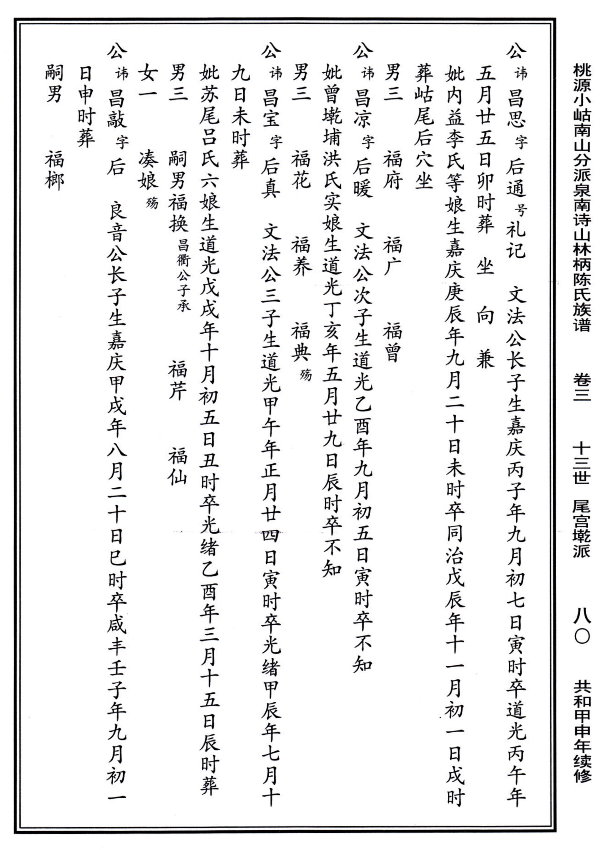 桃源小岵南山分派泉南诗山林柄陈氏族谱 卷三 十三世 尾宫墘派 八〇 共和甲申年续修
公讳昌思字后通号礼记 文法公长子生嘉庆丙子年九月初七日寅时卒道光丙午年
五月廿五日卯时葬 坐 向 兼
妣内益李氏等娘生嘉庆庚辰年九月二十日未时卒同治戊辰年十一月初一日戌时
葬岵尾后穴坐
男三 福府 福广 福曾
公讳昌凉字后暖 文法公次子生道光乙酉年九月初五日寅时卒不知
妣曾墘埔洪氏实娘生道光丁亥年五月廿九日辰时卒不知
男三 福花 福养 福典殇
公讳昌宝字后真 文法公三子生道光甲午年正月廿四日寅时卒光绪甲辰年七月十
九日未时葬
妣苏尾吕氏六娘生道光戊戌年十月初五日丑时卒光绪乙酉年三月十五日辰时葬
男三 嗣男福换昌衢公子承 福芹 福仙
女一 凑娘殇
公讳昌敲字后 良音公长子生嘉庆甲戌年八月二十日巳时卒咸丰壬子年九月初一
日申时葬
嗣男 福榔